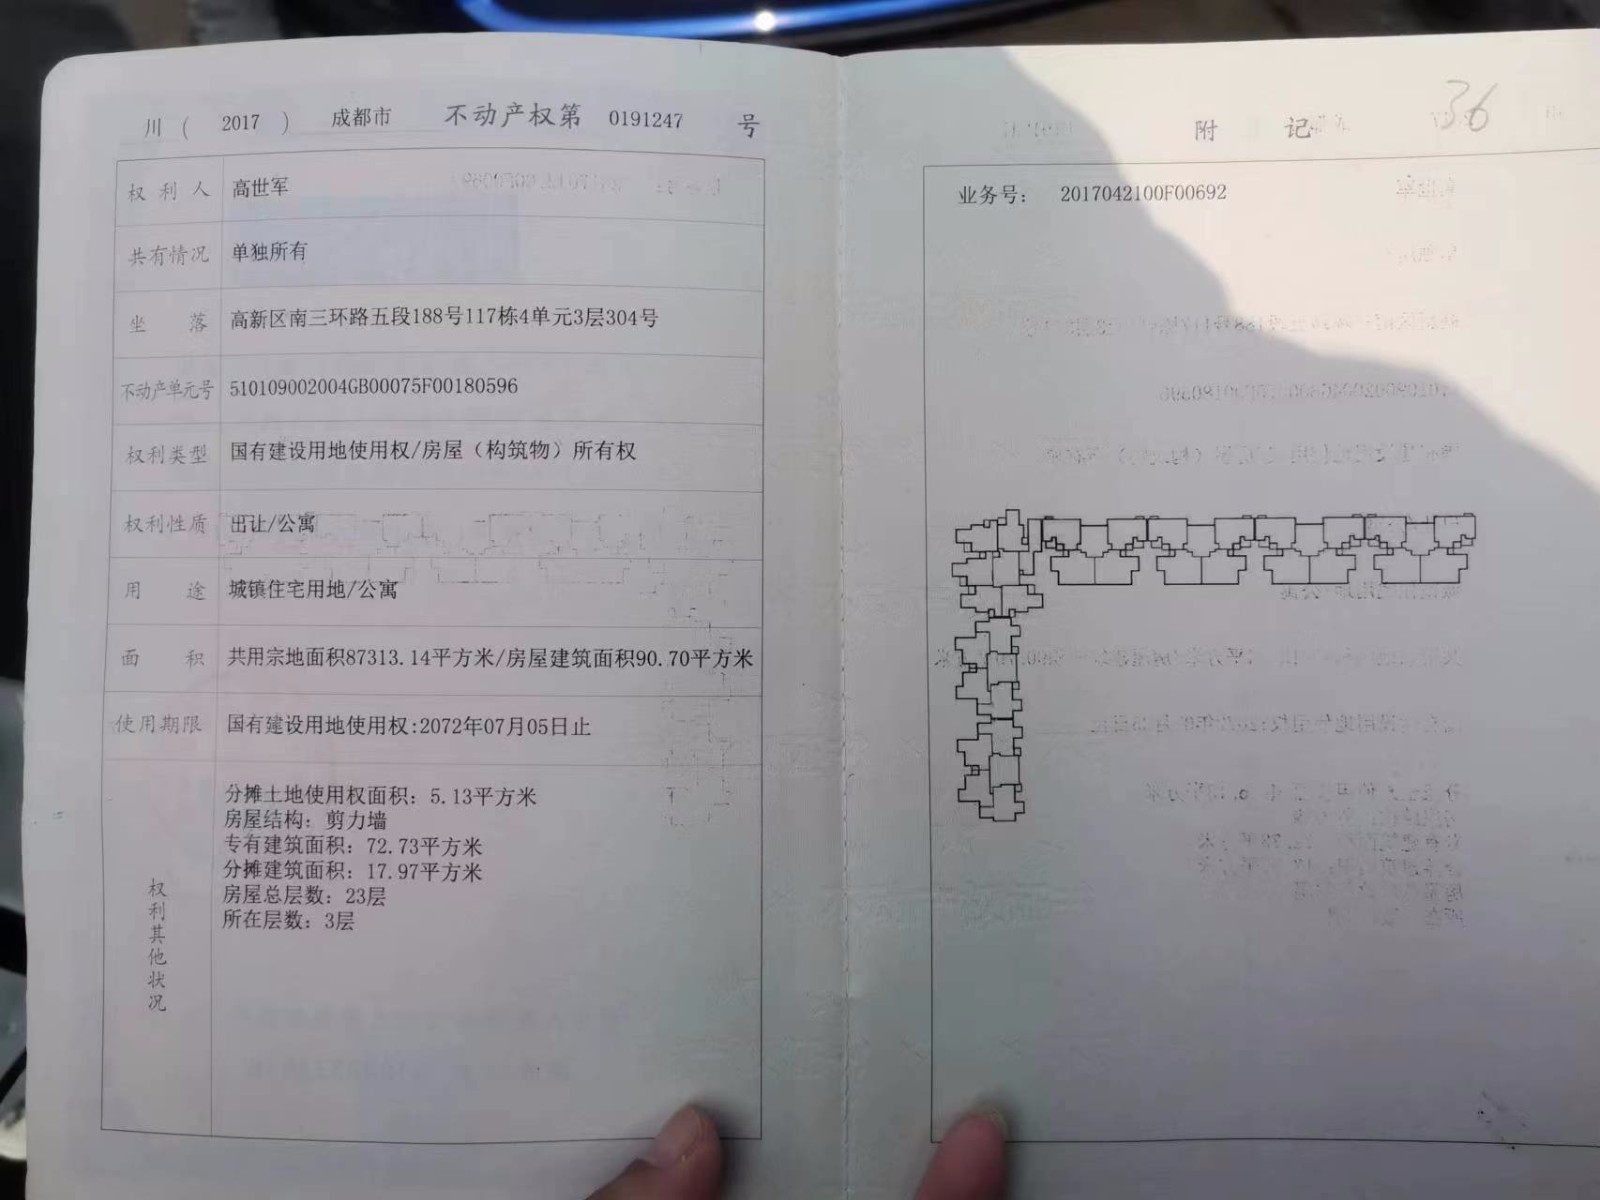 川 ( 2017 ) 成都市 不动产权第 0191247 号
权利人 高世军
共有情况 单独所有
坐落 高新区南三环路五段188号117栋4单元3层304号
不动产单元号 510109002004GB00075F00180596
权利类型 国有建设用地使用权/房屋（构筑物）所有权
权利性质 出让/公寓
用途 城镇住宅用地/公寓
面积 共用宗地面积87313.14平方米/房屋建筑面积90.70平方米
使用期限 国有建设用地使用权:2072年07月05日止
权利其他状况
分摊土地使用权面积: 5.13平方米
房屋结构: 剪力墙
专有建筑面积: 72.73平方米
分摊建筑面积: 17.97平方米
房屋总层数: 23层
所在层数: 3层
附记
36
业务号: 2017042100F00692